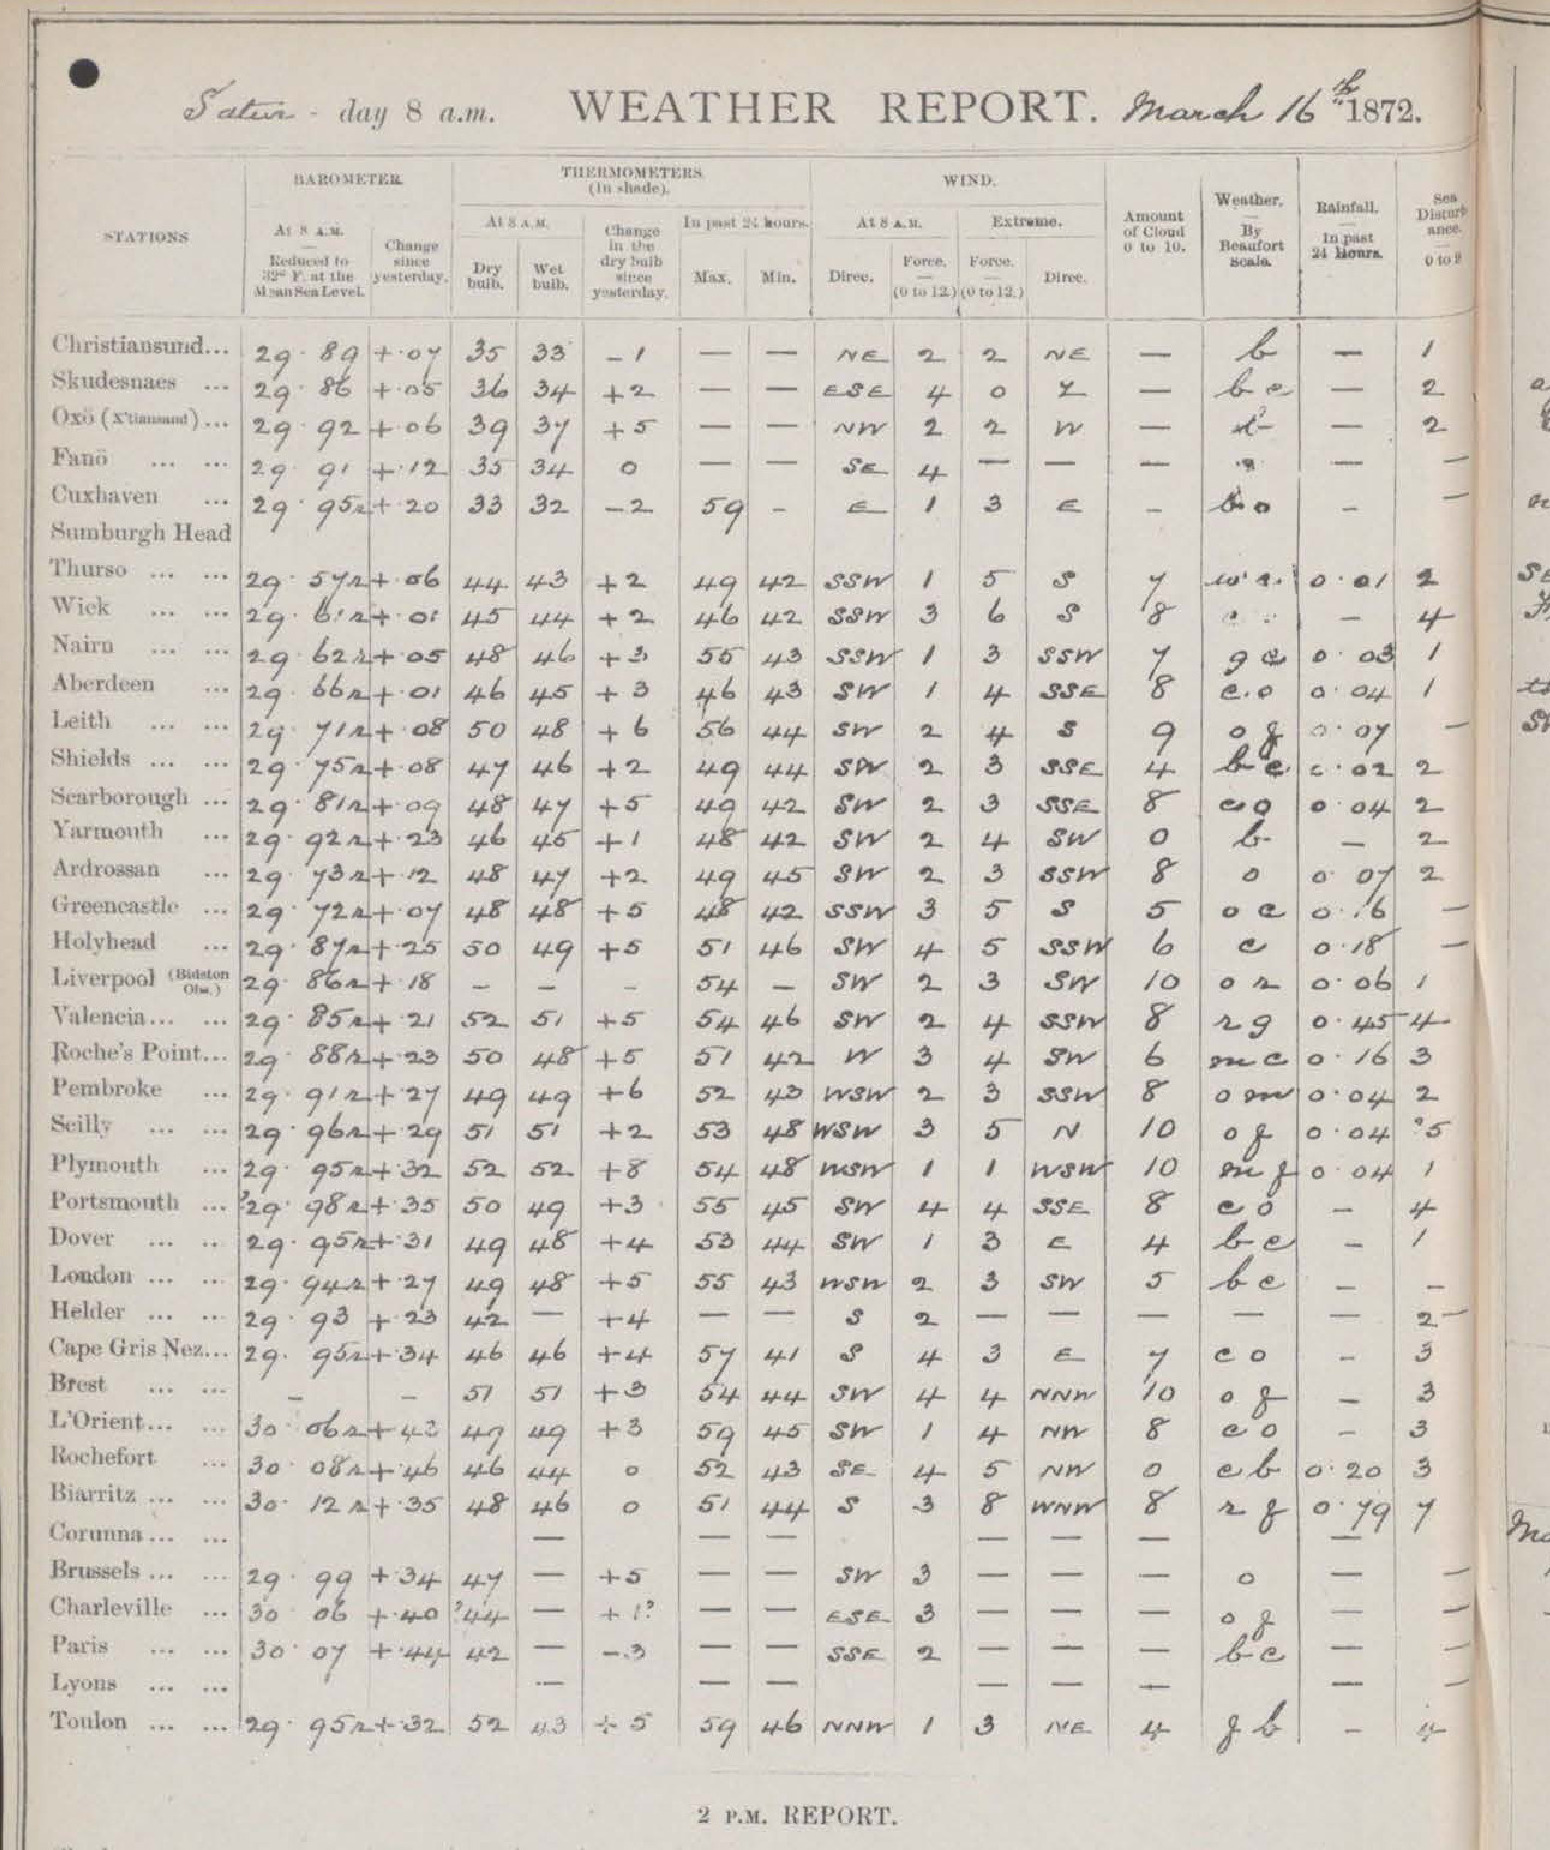 Satur - day 8 a.m. WEATHER REPORT. March 16th 1872.
STATIONS
BAROMETER.
At 8 A.M.
Reduced to 32° F. at the Mean Sea Level.
Change since yesterday.
THERMOMETERS (In shade).
At 8 A.M.
Dry bulb.
Wet bulb.
Change in the dry bulb since yesterday.
In past 24 hours.
Max.
Min.
WIND.
At 8 A.M.
Direc.
Force. (0 to 12.)
Extreme.
Force. (0 to 12.)
Direc.
Amount of Cloud 0 to 10.
Weather. By Beaufort Scale.
Rainfall. In past 24 hours.
Sea Disturb ance. 0 to 9
Christiansund... 29.89 +.07 35 33 -1 — — NE 2 2 NE — b — 1
Skudesnaes ... 29.86 +.05 36 34 +2 — — ESE 4 0 Z — bc — 2
Oxö (X'tiansand)... 29.92 +.06 39 37 +5 — — NW 2 2 W — — 2
Fanö ... ... 29.91 +.12 35 34 0 — — SE 4 — — — — —
Cuxhaven ... 29.95r +.20 33 32 -2 59 - E 1 3 E - bo - —
Sumburgh Head
Thurso ... ... 29.57r +.06 44 43 +2 49 42 SSW 1 5 S 7 0.01 2
Wick ... ... 29.61r +.01 45 44 +2 46 42 SSW 3 6 S 8 — 4
Nairn ... ... 29.62r +.05 48 46 +3 55 43 SSW 1 3 SSW 7 gc 0.03 1
Aberdeen ... 29.66r +.01 46 45 +3 46 43 SW 1 4 SSE 8 c.o 0.04 1
Leith ... ... 29.71r +.08 50 48 +6 56 44 SW 2 4 S 9 of 0.07 —
Shields ... ... 29.75r +.08 47 46 +2 49 44 SW 2 3 SSE 4 bc 0.02 2
Scarborough ... 29.81r +.09 48 47 +5 49 42 SW 2 3 SSE 8 co 0.04 2
Yarmouth ... 29.92r +.23 46 45 +1 48 42 SW 2 4 SW 0 b — 2
Ardrossan ... 29.73r +.12 48 47 +2 49 45 SW 2 3 SSW 8 o 0.07 2
Greencastle ... 29.72r +.07 48 48 +5 48 42 SSW 3 5 S 5 oc 0.16 —
Holyhead ... 29.87r +.25 50 49 +5 51 46 SW 4 5 SSW 6 c 0.18 —
Liverpool (Bidston Obs.) 29.86r +.18 - - - 54 - SW 2 3 SW 10 or 0.06 1
Valencia... ... 29.85r +.21 52 51 +5 54 46 SW 2 4 SSW 8 rg 0.45 4
Roche's Point... 29.88r +.23 50 48 +5 51 42 W 3 4 SW 6 mc 0.16 3
Pembroke ... 29.91r +.27 49 49 +6 52 43 WSW 2 3 SSW 8 om 0.04 2
Scilly ... ... 29.96r +.29 51 51 +2 53 48 WSW 3 5 N 10 of 0.04 5
Plymouth ... 29.95r +.32 52 52 +8 54 48 WSW 1 1 WSW 10 mf 0.04 1
Portsmouth ... ?29.98r +.35 50 49 +3 55 45 SW 4 4 SSE 8 co - 4
Dover ... ... 29.95r +.31 49 48 +4 53 44 SW 1 3 E 4 bc - 1
London ... ... 29.94r +.27 49 48 +5 55 43 WSW 2 3 SW 5 bc - -
Helder ... ... 29.93 +.23 42 — +4 — — S 2 — — — — — 2
Cape Gris Nez... 29.95r +.34 46 46 +4 57 41 S 4 3 E 7 co - 3
Brest ... ... - - 51 51 +3 54 44 SW 4 4 NNW 10 of - 3
L'Orient... ... 30.06r +.43 49 49 +3 59 45 SW 1 4 NW 8 co - 3
Rochefort ... 30.08r +.46 46 44 0 52 43 SE 4 5 NW 0 cb 0.20 3
Biarritz ... ... 30.12r +.35 48 46 0 51 44 S 3 8 WNW 8 rf 0.79 7
Corunna ... ... — — — — — — —
Brussels ... ... 29.99 +.34 47 — +5 — — SW 3 — — — o — —
Charleville ... 30.06 +.40 ?44 — +1? — — ESE 3 — — — of — —
Paris ... ... 30.07 +.44 42 — -3 — — SSE 2 — — — bc — —
Lyons ... ... — — — — — — — —
Toulon ... ... 29.95r +.32 52 43 +5 59 46 NNW 1 3 NE 4 fb - 4
2 P.M. REPORT.